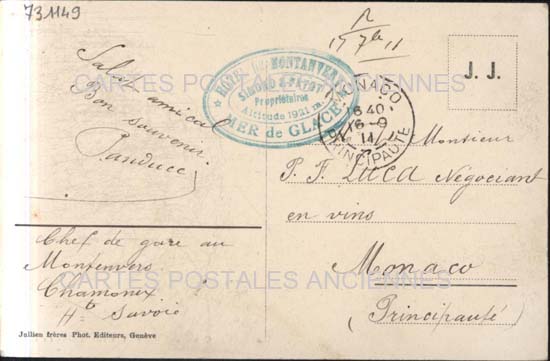 731149
R
17 7bre 11
J. J.
HOTEL DU MONTANVERT
SIMOND & PAYOT
Propriétaires
Altitude 1921 m.
MER de GLACE
MONACO
16 40
16 -9
11
PRINCIPAUTE
CARTES POSTALES ANCIENNES
Salut amical
Bon souvenir.
Monsieur
P. F. LUCA Négociant
en vins
Monaco
(Principauté)
Chef de gare au
Montenvers
Chamonix
Hte Savoie
CARTES POSTALES ANCIENNES
Jullien frères Phot. Editeurs, Genève